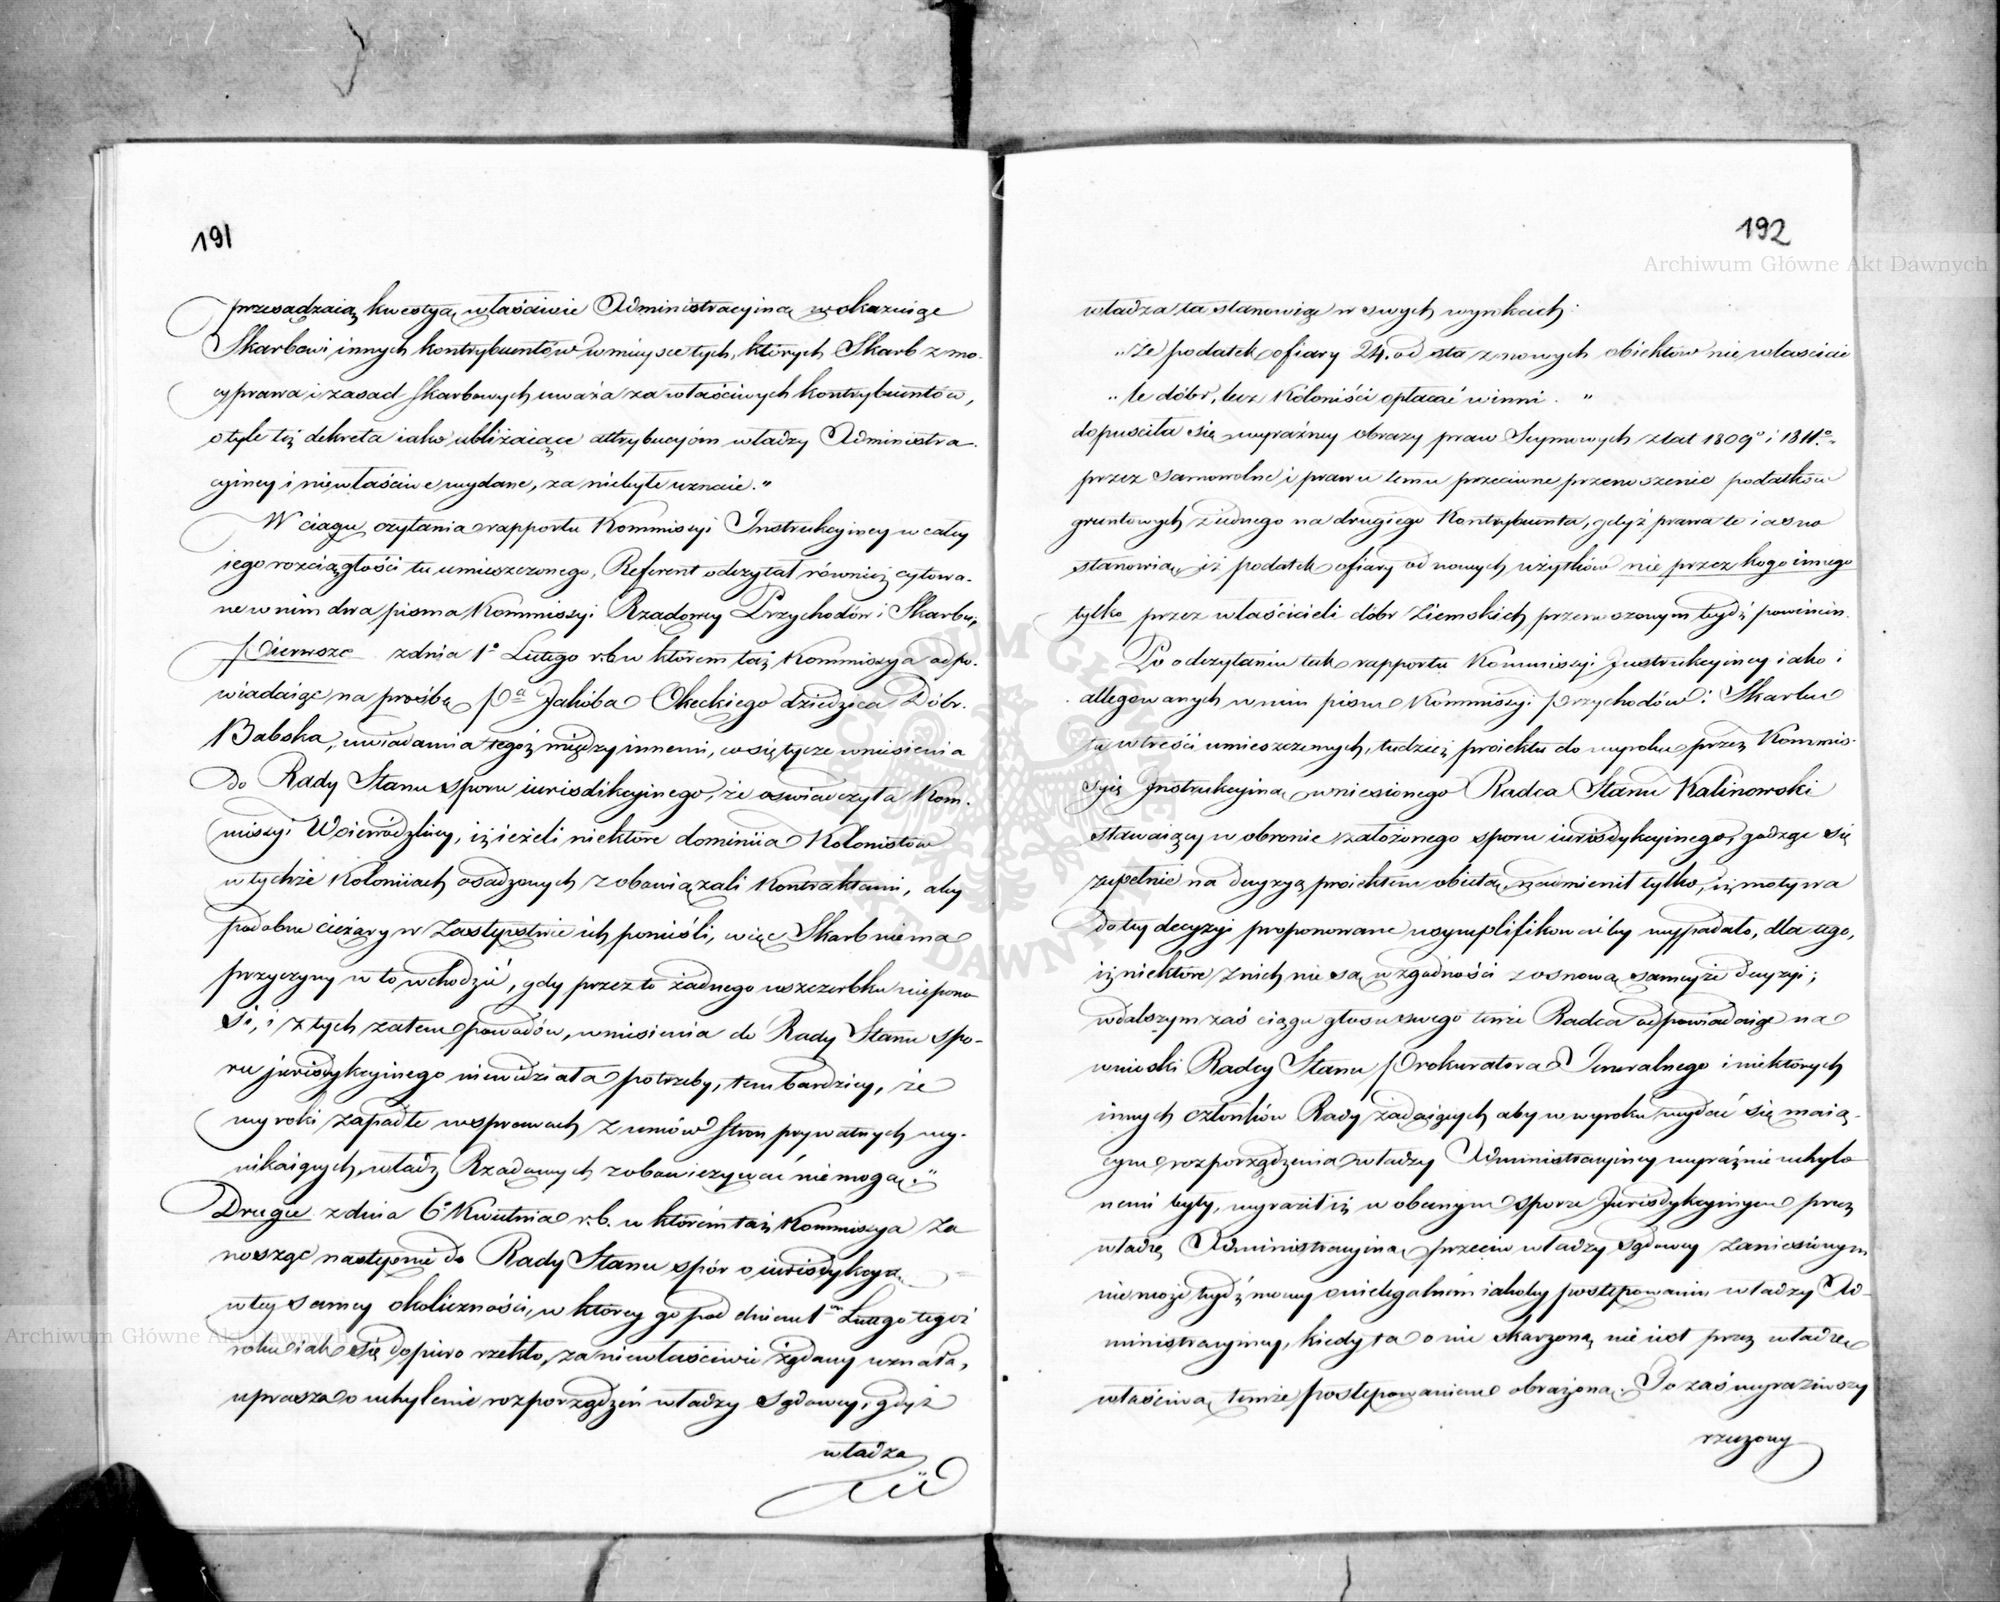 191
przesądzaią kwestyą właściwie Administracyiną wskazuiąc
Skarbowi innych kontrybuentów w mieysce tych, których Skarb z mo-
cy prawa i zasad skarbowych uważa za właściwych kontrybuentów,
otyle też dekreta iako ubliżaiące attrybucyóm władzy Administra-
cyiney i niewłaściwie wydane, za niebyłe uznaie."
W ciągu czytania rapportu Kommissyi Instrukcyiney w całey
iego rozciągłości tu umieszczonego, Referent odczytał również cytowa-
ne w nim dwa pisma Kommissyi Rządowey Przychodów i Skarbu,
Pierwsze z dnia 1o Lutego r.b. w którem taż Kommissya odpo-
wiadaiąc na prośbę Pa Jakóba Okęckiego dziedzica Dóbr
Babska, uwiadamia tegoż między innemi, co się tycze wniesienia
do Rady Stanu sporu iurisdikcyinego, że oświadczyła Kom-
missyi Woiewódzkiey, iż ieżeli niektóre dominiia Kolonistów
w tychże Koloniiach osadzonych zobowiązali Kontraktami, aby
podobne ciężary w zastępstwie ich ponieśli, więc Skarb niema
przyczyny w to wchodzić, gdy przez to żadnego uszczerbku niepono-
si, i z tych zatem powodów, wniesienia do Rady Stanu spo-
ru jurisdykcyinego niewidziała potrzeby, tembardziey, że
wyroki zapadłe w sprawach z umów stron prywatnych wy-
nikaiących, władz Rządowych zobowiązywać nie mogą."
Drugie z dnia 6o Kwietnia r.b. w którém taż Kommissya za
nosząc następnie do Rady Stanu spór o iurisdykcyą
w tey samey okoliczności, w którey go pod dniem 1m Lutego tegoż
roku iak się dopiero rzekło, za niewłaściwie żądany uznała,
uprasza o uchylenie rozporządzeń władzy Sądowey, gdyż
władza
192
władza ta stanowiąc w swych wyrokach:
"że podatek ofiary 24. od sta z nowych obiektów nie właścicie
"le dóbr, lecz Kóloniści opłacać winni. "
dopuściła się wyraźney obrazy praw Seymowych z lat 1809o i 1811o
przez samowolne i prawu temu przeciwne przenoszenie podatków
gruntowych z iednego na drugiego Kontrybuenta, gdyż prawa te iasno
stanowią, iż podatek ofiary od nowych użytków nie przez kogo innego
tylko przez właścicieli dóbr Ziemskich przenoszonym bydź powinien.
Po odczytaniu tak rapportu Kommissyi Instrukcyiney iako i
allegowanych w nim pism Kommissyi Przychodów i Skarbu
tu w treści umieszczonych, tudzież proiektu do wyroku przez Kommis-
syię Instrukcyiną wniesionego Radca Stanu Kalinowski
stawaiący w obronie założonego sporu iurisdykcyinego, godząc się
zupełnie na decyzyą proiektem obiętą, namienił tylko, iż motywa
do tey decyzyi proponowane usymplifikowaćby wypadało, dla tego,
iż niektóre z nich nie są w zgodności z osnową sameyże decyzyi;
w dalszym zaś ciągu głosu swego tenże Radca odpowiadaiąc na
wnioski Radcy Stanu Prokuratora Jeneralnego i niektórych
innych członków Rady żądaiących aby w wyroku wydać się maią-
cym rozporządzenia władzy Administracyiney wyraźnie uchylo
nemi były, wyraził iż w obecnym sporze Jurisdykcyinym przez
władzę Administracyiną przeciw władzy sądowey zaniesionym
nie może bydź mowy o nielegalném iakoby postępowaniu władzy Ad-
ministracyiney, kiedy ta o nie skarżoną nie iest przez władzę
właściwą temże postępowaniem obrażoną. To zaś wyraziwszy
rzeczony